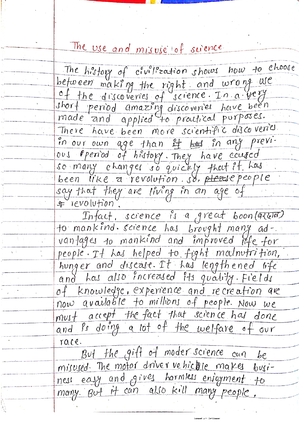 The use and misuse of science
The history of civilization shows how to choose
between making the right and wrong use
of the discoveries of science. In a very
short period amazing discoveries have been
made and applied to practical purposes.
There have been more scientific discoveries
in our own age than it has in any previ-
ous period of history. They have caused
so many changes so quickly that it has
been like a revolution. so please people
say that they are living in an age of
revolution.
Infact, science is a great boon (वरदान)
to mankind. science has brought many ad-
vantages to mankind and improved life for
people. It has helped to fight malnutrition,
hunger and disease. It has lengthened life
and has also increased its quality. Fields
of knowledge, experience and recreation are
now available to millions of people. Now we
must accept the fact that science has done
and is doing a lot of the welfare of our
race.
But the gift of moder science can be
misused. The motor driver vehicle makes busi-
ness easy and gives harmless enjoyment to
many. But it can also kill many people.